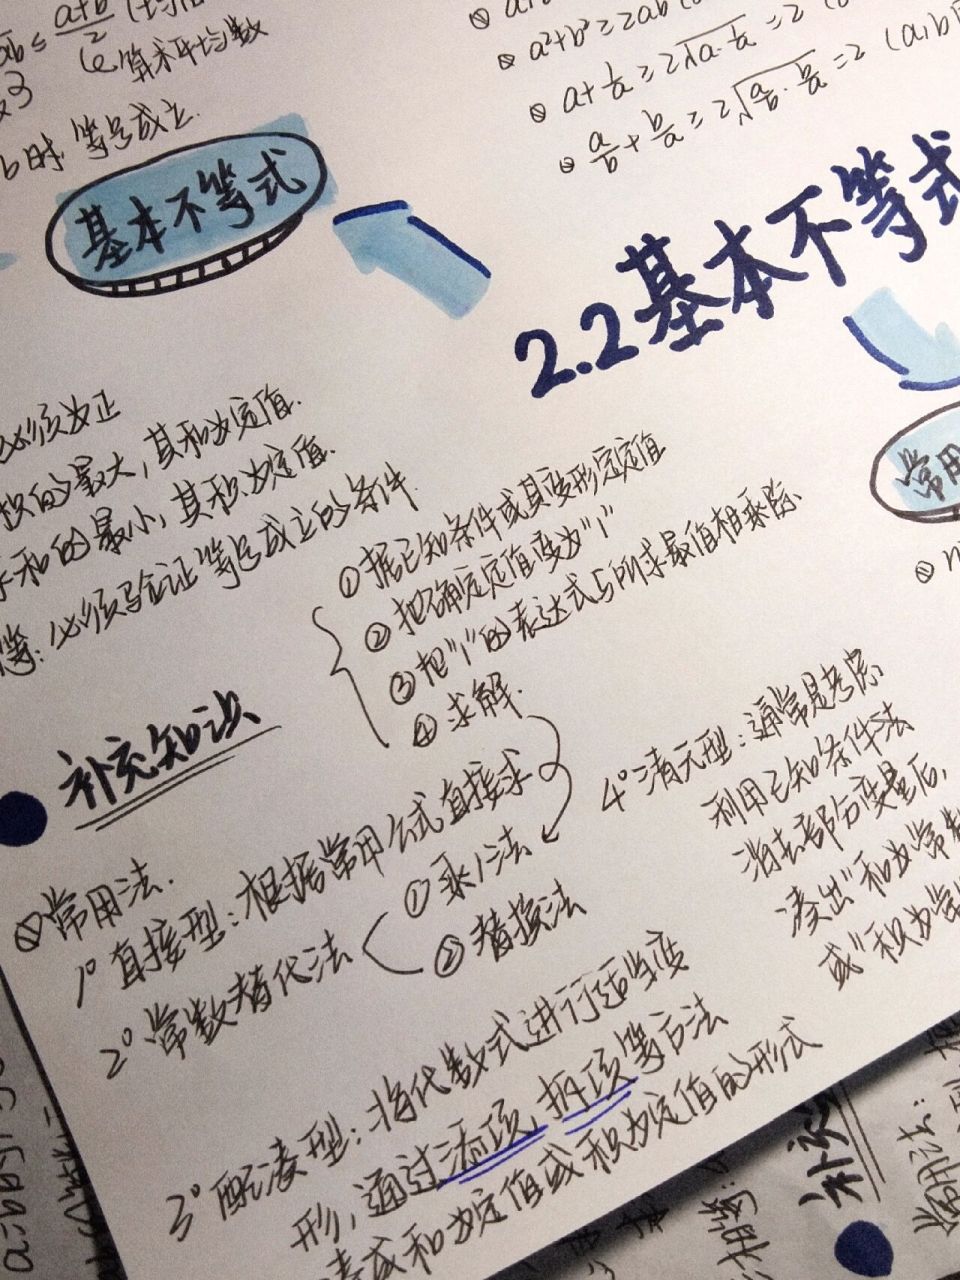 ≤ a+b/2
算术平均数
b时,等号成立.
a²+b²≥2ab
a+1/a≥2√a·1/a=2
a/b+b/a≥2√a/b·b/a=2 (a,b
基本不等式
2.2基本不等式
常用
必须为正
积的最大,其和为定值.
和的最小,其积为定值.
等:必须验证等号成立的条件.
①据已知条件或其变形定定值
②把确定定值变为"1"
③把"1"的表达式与所求最值相乘除
④求解.
补充知识
常用法.
1°直接型:根据常用公式直接求
2°常数替代法
①乘1法
②替换法
3°配凑型:将代数式进行适当变
形,通过添项,拆项等方法
凑成和为定值或积为定值的形式
4°消元型:通常是考虑
利用已知条件法
消去部分变量后,
凑出"和为常数
或"积为常
补充
常用法: